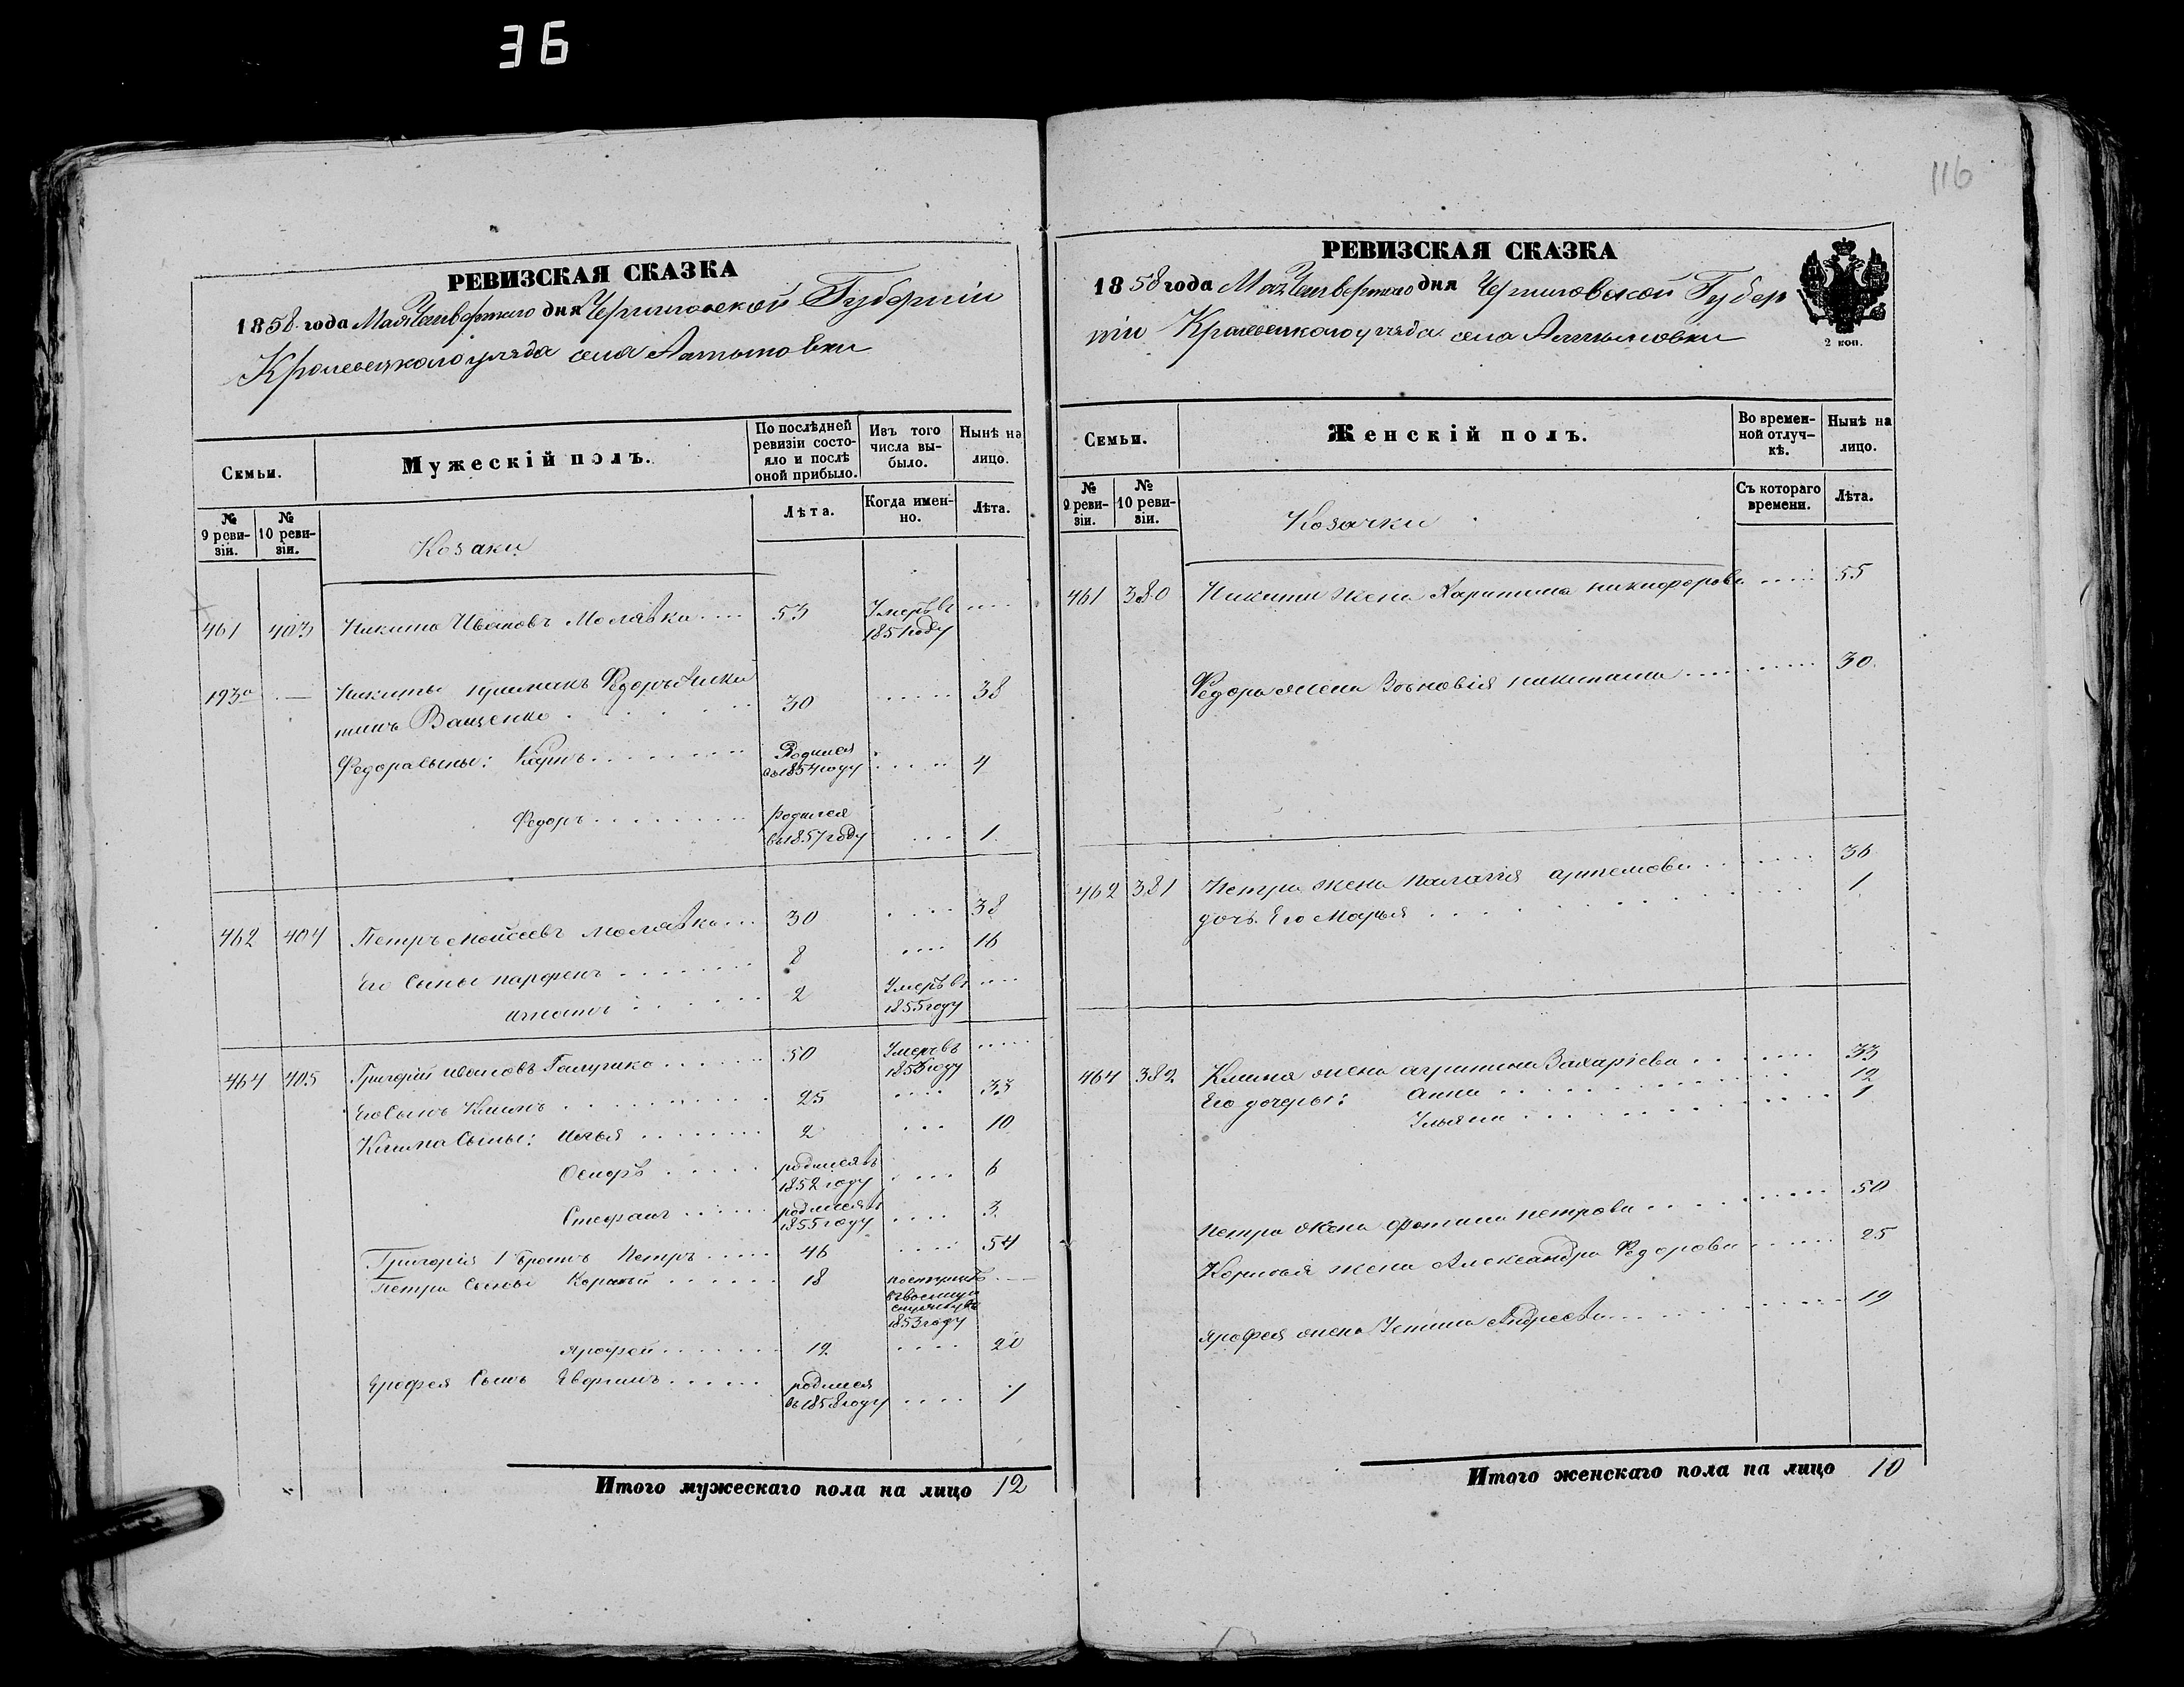 36
116
РЕВИЗСКАЯ СКАЗКА
1858 года Мая Четвертого дня Черниговской Губернии
Кролевецкого уезда села Алтыновки
Семьи.
Мужескій полъ.
По послѣдней ревизіи состояло и послѣ оной прибыло.
Изъ того числа выбыло.
Нынѣ на лицо.
№ 9 ревизіи.
№ 10 ревизіи.
Лѣта.
Когда именно.
Лѣта.
Козаки
461 403 Никита Ивановъ Молявка 53 Умеръ въ 1851 году
193 Никиты приимакъ Федоръ Никитинъ Ващенко 30 38
Федора сыны: Карпъ Родился въ 1854 году 4
Федоръ родился въ 1857 году 1
462 404 Петръ Моисеевъ Молявка 30 38
Его Сыны парфенъ 8 16
игнатъ 2 Умеръ въ 1855 году
464 405 Григорій Ивановъ 50 Умеръ въ году
Его Сынъ Климъ 25 33
Клима Сыны: Илья 2 10
Осипъ родился въ 1852 году 6
Стефанъ родился въ 1855 году 3
Григорія 1 братъ Петръ 46 54
Петра Сыны Корнѣй 18 поступилъ въ военную службу въ 1853 году
ярофей 12 20
Ерофея Сынъ родился въ 1858 году
Итого мужескаго пола на лицо 12
РЕВИЗСКАЯ СКАЗКА
1858 года Мая Четвертого дня Черниговской Губер
ніи Кролевецкого уезда села Алтыновки
2 коп.
Семьи.
Женскій полъ.
Во временной отлучкѣ.
Нынѣ на лицо.
№ 9 ревизіи.
№ 10 ревизіи.
Съ котораго времени.
Лѣта.
Козачки
461 380 Никиты жена Харитина никифорова 55
Федора жена Зѣновія никитина 30
462 381 Петра жена палагія артемова 36
дочь Его Марья 1
464 382 Клима жена Захаріева 33
Его дочеры: анна 12
Ульяна 1
петра жена фотиния петрова 50
Корнѣя жена Александра Федорова 25
ярофея жена Устина Андреева 19
Итого женскаго пола на лицо 10